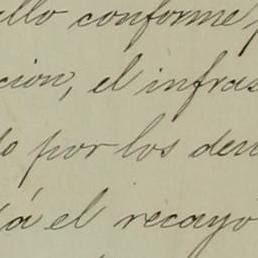 ello conforme
cion, el infras
o por los dem
tá el recayó